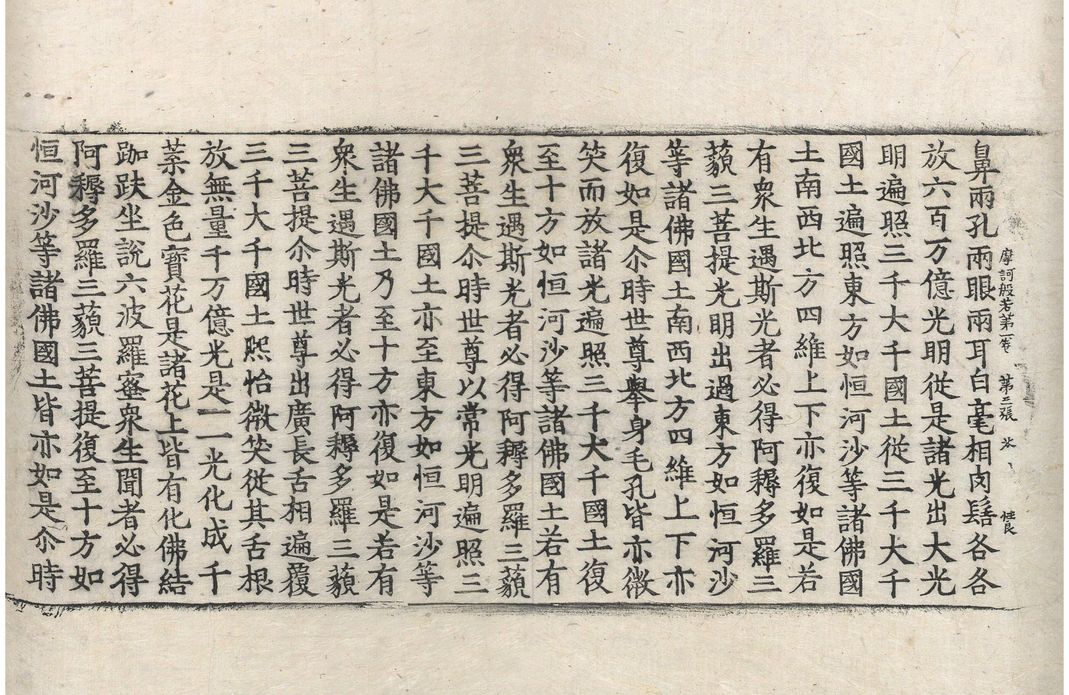 摩訶般若第一卷 第三張 性良
鼻兩孔兩眼兩耳白毫相肉髻各各
放六百万億光明從是諸光出大光
明遍照三千大千國土從三千大千
國土遍照東方如恒河沙等諸佛國
土南西北方四維上下亦復如是若
有衆生遇斯光者必得阿耨多羅三
藐三菩提光明出過東方如恒河沙
等諸佛國土南西北方四維上下亦
復如是尒時世尊舉身毛孔皆亦微
笑而放諸光遍照三千大千國土復
至十方如恒河沙等諸佛國土若有
衆生遇斯光者必得阿耨多羅三藐
三菩提尒時世尊以常光明遍照三
千大千國土亦至東方如恒河沙等
諸佛國土乃至十方亦復如是若有
衆生遇斯光者必得阿耨多羅三藐
三菩提尒時世尊出廣長舌相遍覆
三千大千國土熈怡微笑從其舌根
放無量千万億光是一一光化成千
葉金色寶花是諸花上皆有化佛結
跏趺坐說六波羅蜜衆生聞者必得
阿耨多羅三藐三菩提復至十方如
恒河沙等諸佛國土皆亦如是尒時